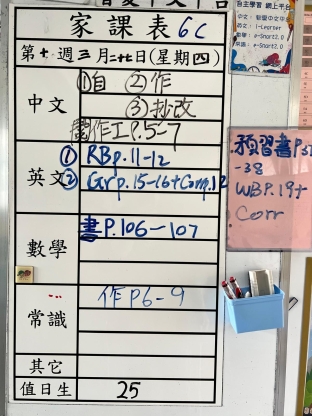 家課表 6C
第十週三月二十日(星期四)
中文
①自 ②作
③抄改
作工P.5-7
英文
① RBp.11-12
② Grp.15-16+Comp.1,2
數學
書P.106-107
常識
作P6-9
其它
值日生 25
自主學習 網上平台
預習書P37
-38
WBP.19+
Corr